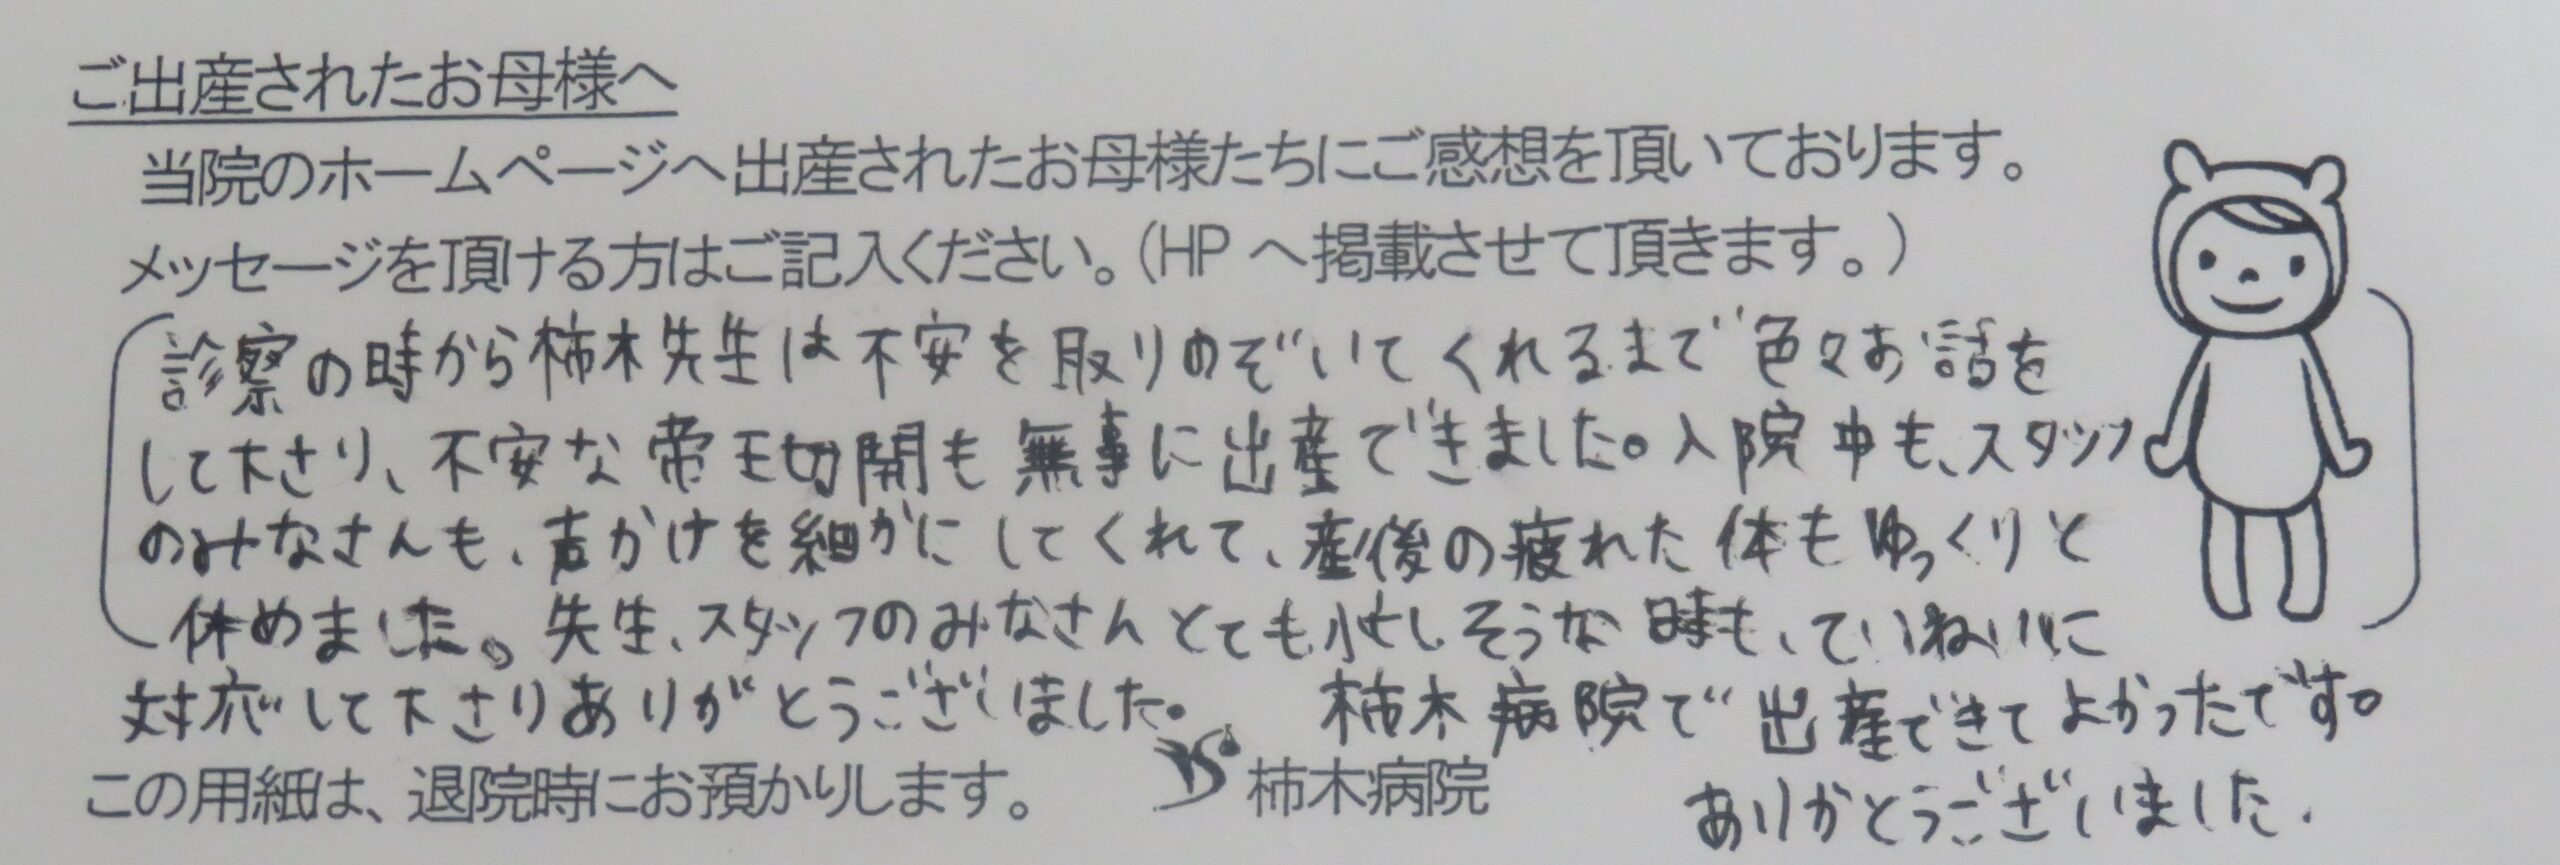 ご出産されたお母様へ
当院のホームページへ出産されたお母様たちにご感想を頂いております。
メッセージを頂ける方はご記入ください。（HP へ掲載させて頂きます。）
診察の時から柿木先生は不安を取りのぞいてくれるまで色々お話を
して下さり、不安な帝王切開も無事に出産できました。入院中も、スタッフ
のみなさんも、声かけを細かにしてくれて、産後の疲れた体もゆっくりと
休めました。先生、スタッフのみなさんとても忙しそうな時も、ていねいに
対応して下さりありがとうございました。 柿木病院で出産できてよかったです。
この用紙は、退院時にお預かりします。 柿木病院
ありがとうございました.